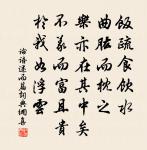 飯疏食飲水
曲肱而枕之
樂亦在其中矣
不義而富且貴
於我如浮雲
論語述而篇詞典網